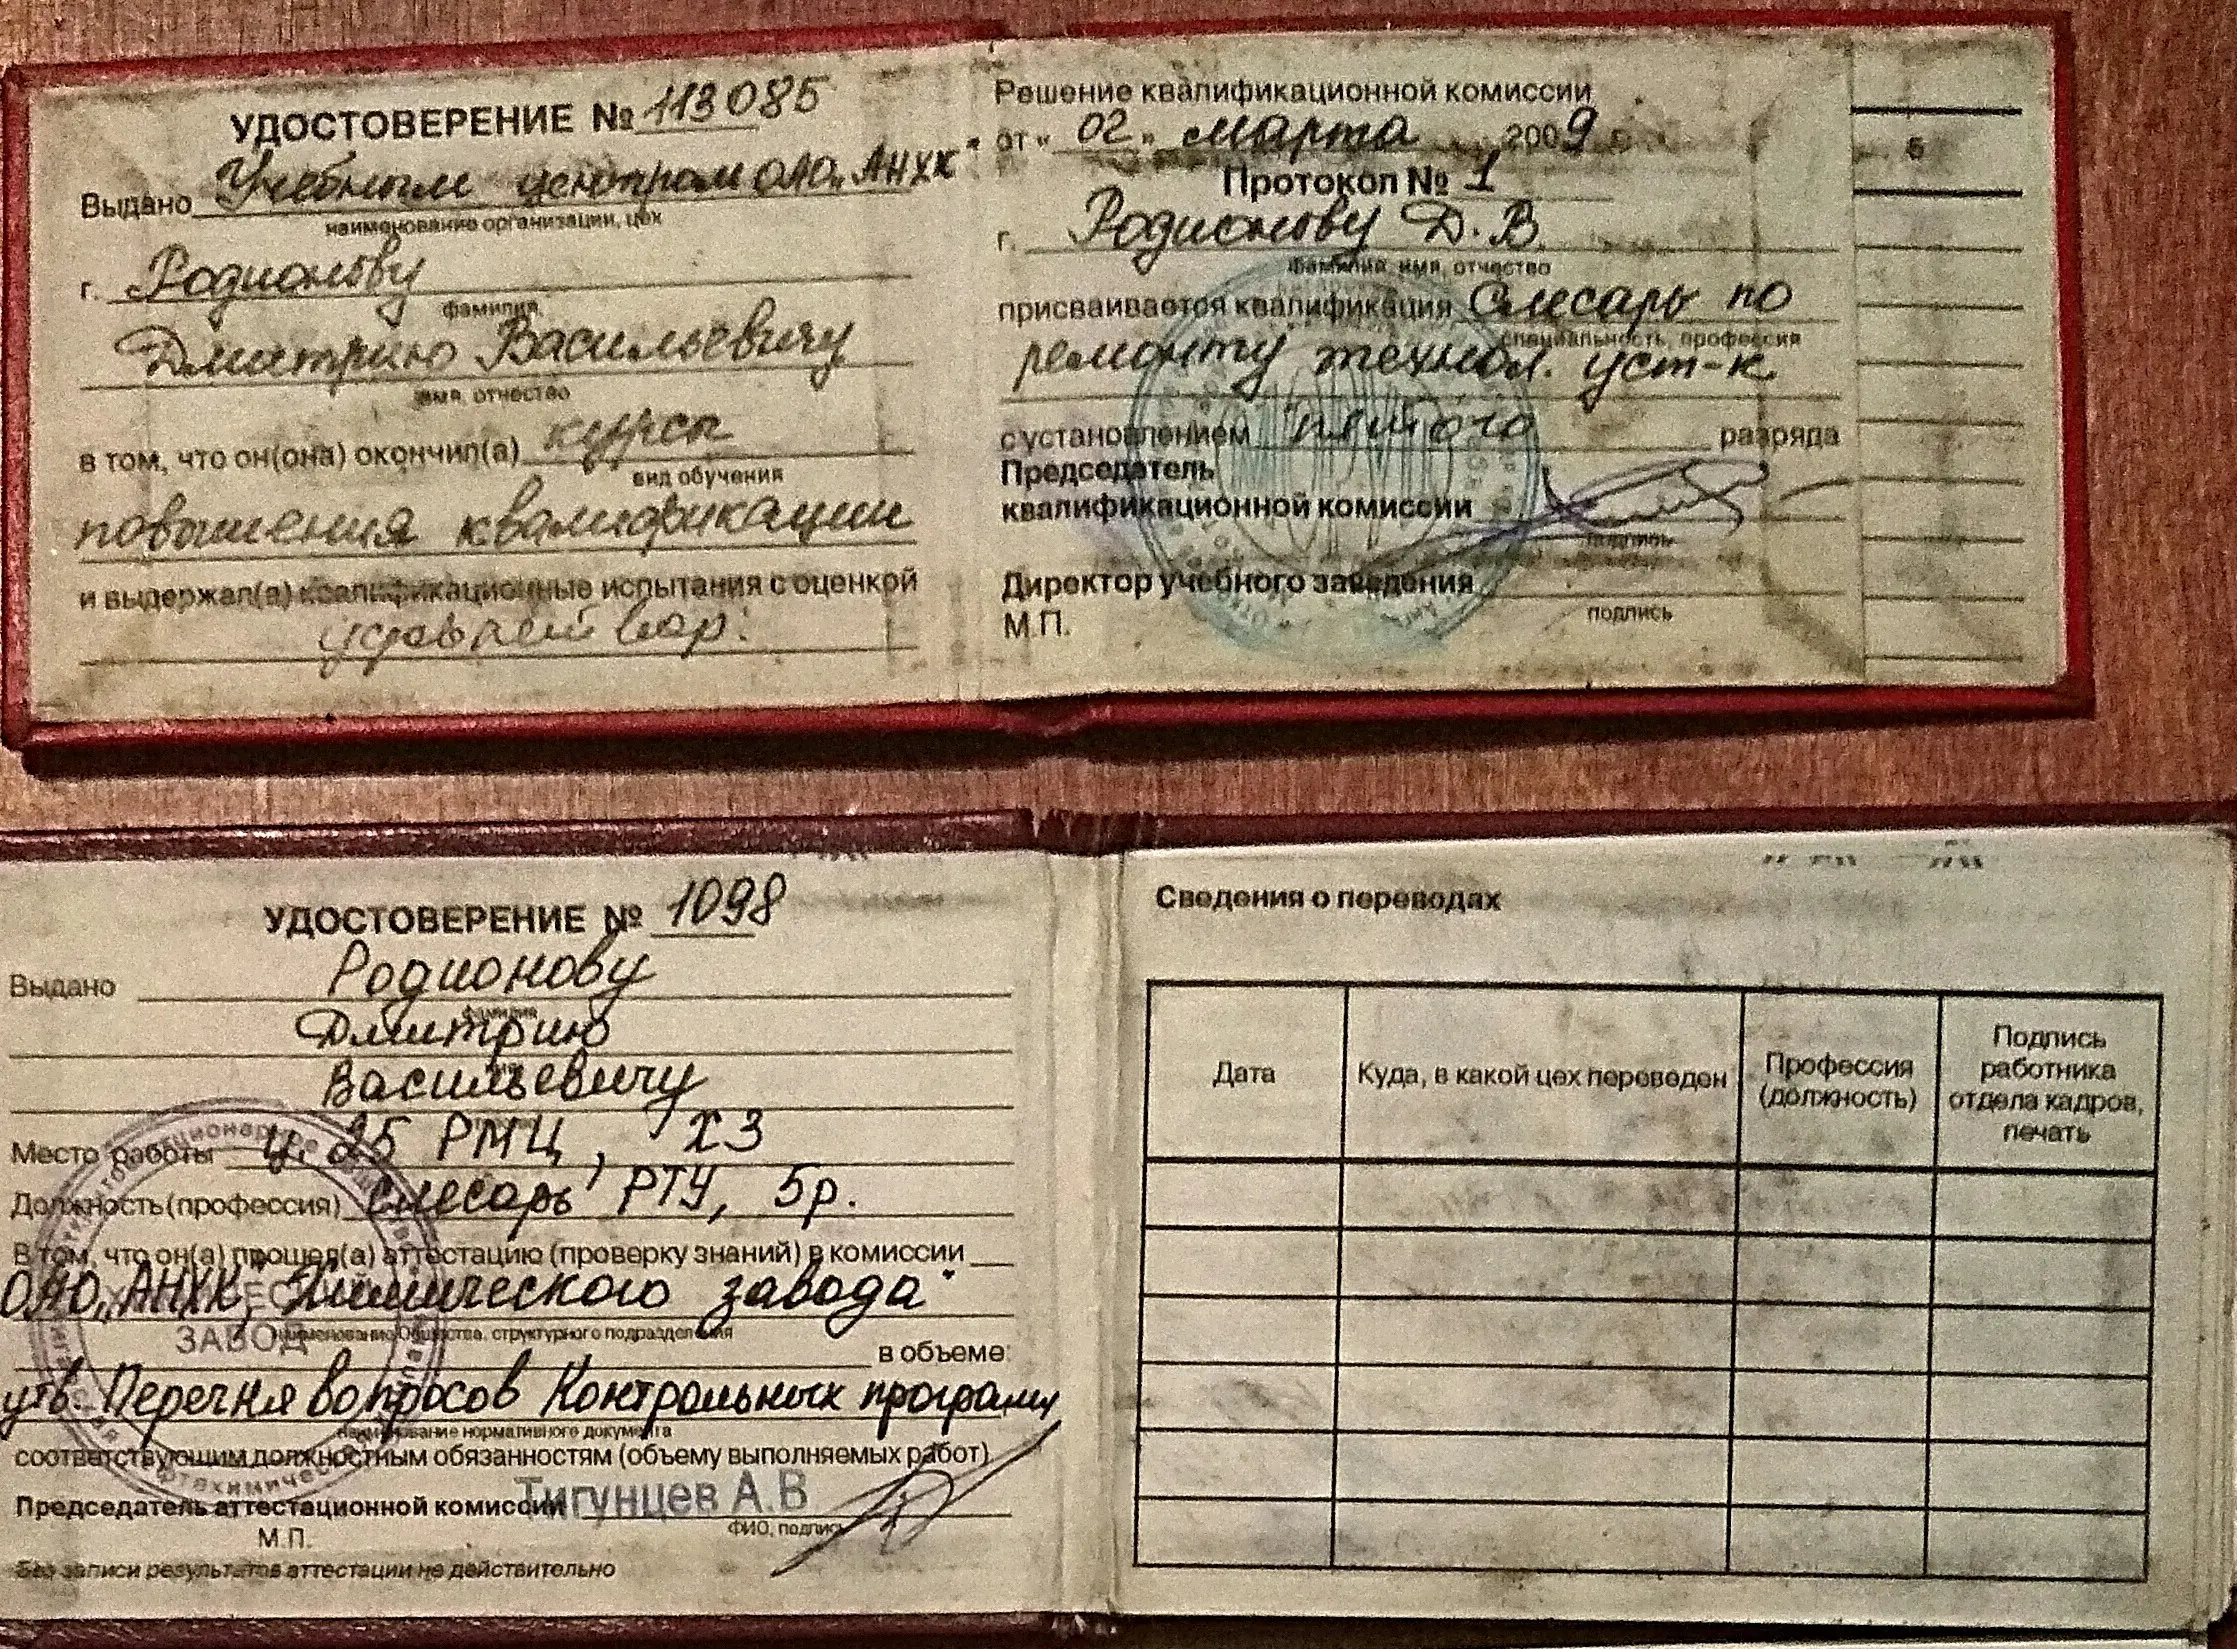 УДОСТОВЕРЕНИЕ № 113085
Выдано Учебным центром ОАО „АНХК"
наименование организации, цех
г. Родионову
фамилия,
Дмитрию Васильевичу
имя, отчество
в том, что он(она) окончил(а) курсы
вид обучения
повышения квалификации
и выдержал(а) квалификационные испытания с оценкой
Решение квалификационной комиссии
от « 02 » марта 2009 г.
Протокол № 1
г. Родионову Д. В.
фамилия, имя, отчество
присваивается квалификация Слесарь по
специальность, профессия
ремонту технол. уст-к
с установлением пятого разряда
Председатель
квалификационной комиссии
подпись
Директор учебного заведения
подпись
М.П.
УДОСТОВЕРЕНИЕ № 1098
Выдано Родионову
фамилия
Дмитрию
Васильевичу
Место работы ц. 25 РМЦ, ХЗ
Должность (профессия) слесарь РТУ, 5р.
В том, что он(а) прошел(а) аттестацию (проверку знаний) в комиссии
ОАО „АНХК", Химического завода"
наименование Общества, структурного подразделения
в объеме:
утв. Перечня вопросов Контрольных программ
наименование нормативного документа
соответствующим должностным обязанностям (объему выполняемых работ)
Председатель аттестационной комиссии Тигунцев А.В
ФИО, подпись
М.П.
Без записи результатов аттестации не действительно
ЗАВОД
Сведения о переводах
Дата
Куда, в какой цех переведен
Профессия
(должность)
Подпись
работника
отдела кадров,
печать